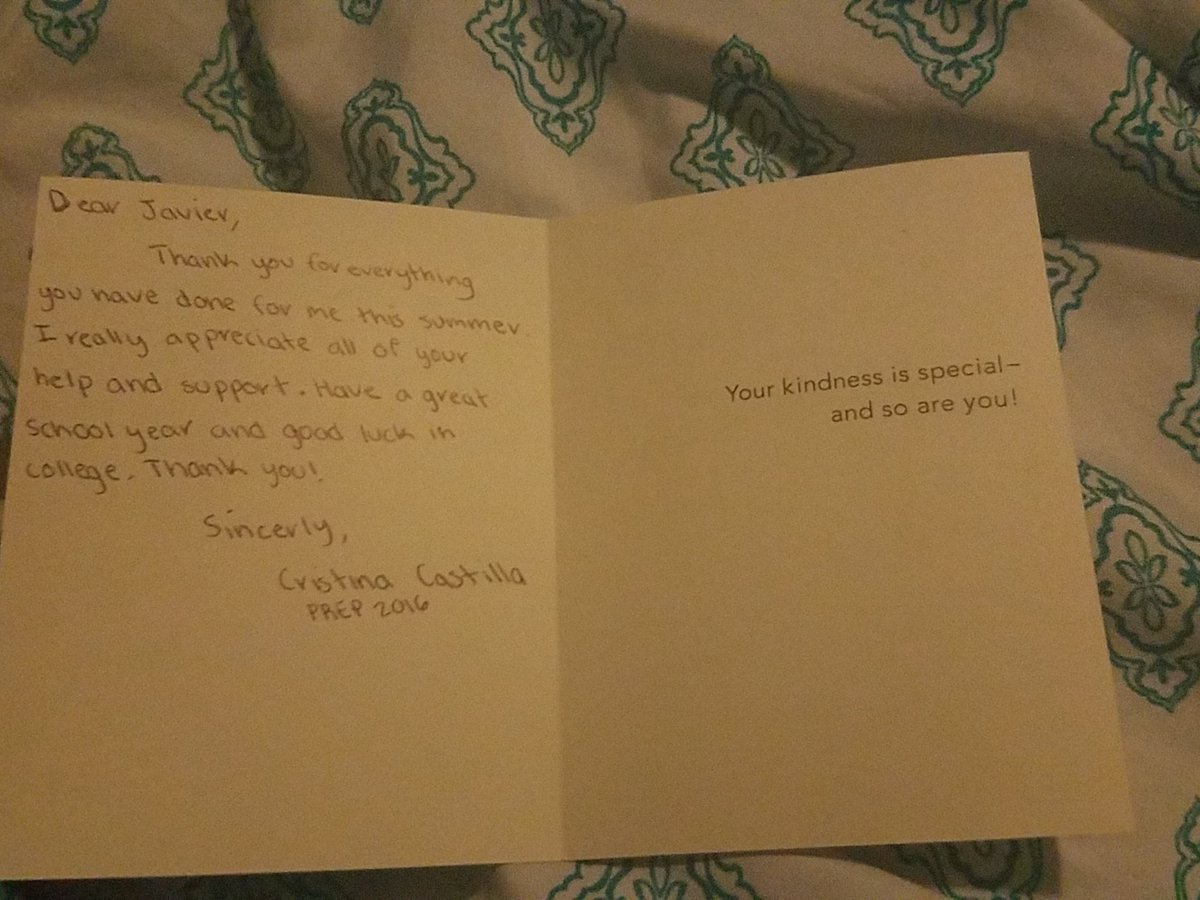 Dear Javier,
Thank you for everything
you have done for me this summer.
I really appreciate all of your
help and support. Have a great
school year and good luck in
college. Thank you!
Sincerly,
Cristina Castilla
PREP 2016
Your kindness is special–
and so are you!